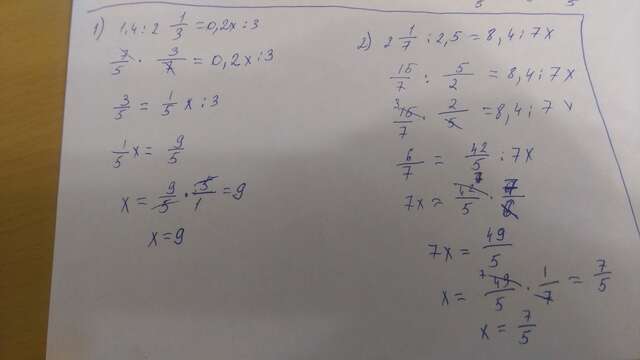 1) 1,4 : 2 1/3 = 0,2x : 3
7/5 · 3/7 = 0,2x : 3
3/5 = 1/5 x : 3
1/5 x = 9/5
x = 9/5 · 5/1 = 9
x = 9
2) 2 1/7 : 2,5 = 8,4 : 7x
15/7 : 5/2 = 8,4 : 7x
3 15/7 · 2/5 = 8,4 : 7x
6/7 = 42/5 : 7x
7x = 42/5 · 7/6
7x = 49/5
x = 7 49/5 · 1/7 = 7/5
x = 7/5